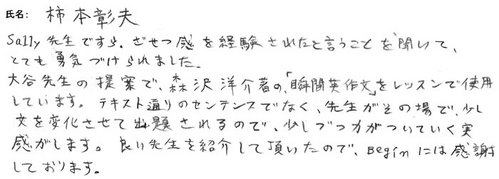 氏名: 柿本彰夫
Sally先生ですら、ざせつ感を経験されたと言うことを聞いて、
とても勇気づけられました。
大谷先生の提案で、森沢洋介著の「瞬間英作文」をレッスンで使用
しています。テキスト通りのセンテンスでなく、先生がその場で、少し
文を変化させて出題されるので、少しづつ力がついていく実
感がします。良い先生を紹介して頂いたので、Beginには感謝
しております。